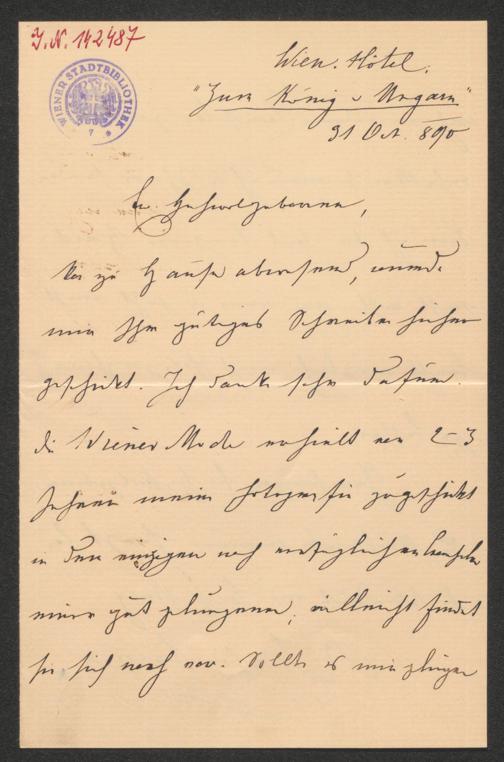 J.N. 142487
WIENER STADTBIBLIOTHEK
Wien. Hôtel.
"Zum König v Ungarn"
31 Oct. 890
Ew. Hochwolgeboren,
zu Hause abwesend, wurde
mir Ihr gütiges Schreiben hieher
geschickt. Ich danke sehr dafür.
Die Wiener Mode erhielt vor 2–3
Jahren meine Fotografie zugeschickt
in dem einzigen noch
einer gut gelungenen, vielleicht findet
sie sich noch vor. Sollte es mir gelingen